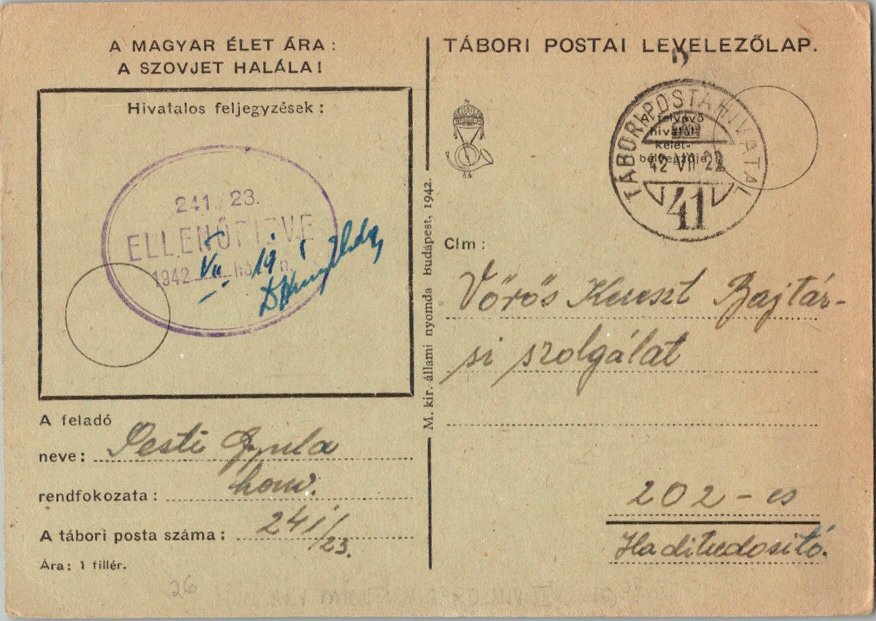 A MAGYAR ÉLET ÁRA:
A SZOVJET HALÁLA!
Hivatalos feljegyzések:
241./23.
ELLENŐRIZVE
1942. VII hó 19 n.
A feladó
neve: Pesti Gyula
rendfokozata: honv.
A tábori posta száma: 241/23.
Ára: 1 fillér.
M. kir. állami nyomda Budapest, 1942.
TÁBORI POSTAI LEVELEZŐLAP.
A felvevő
hivatal
kelet-
bélyegzője
TÁBORI POSTAHIVATAL
42 VII 22
41
Cím:
Vörös Kereszt Bajtár-
si szolgálat
202-es
Haditudósító.
26